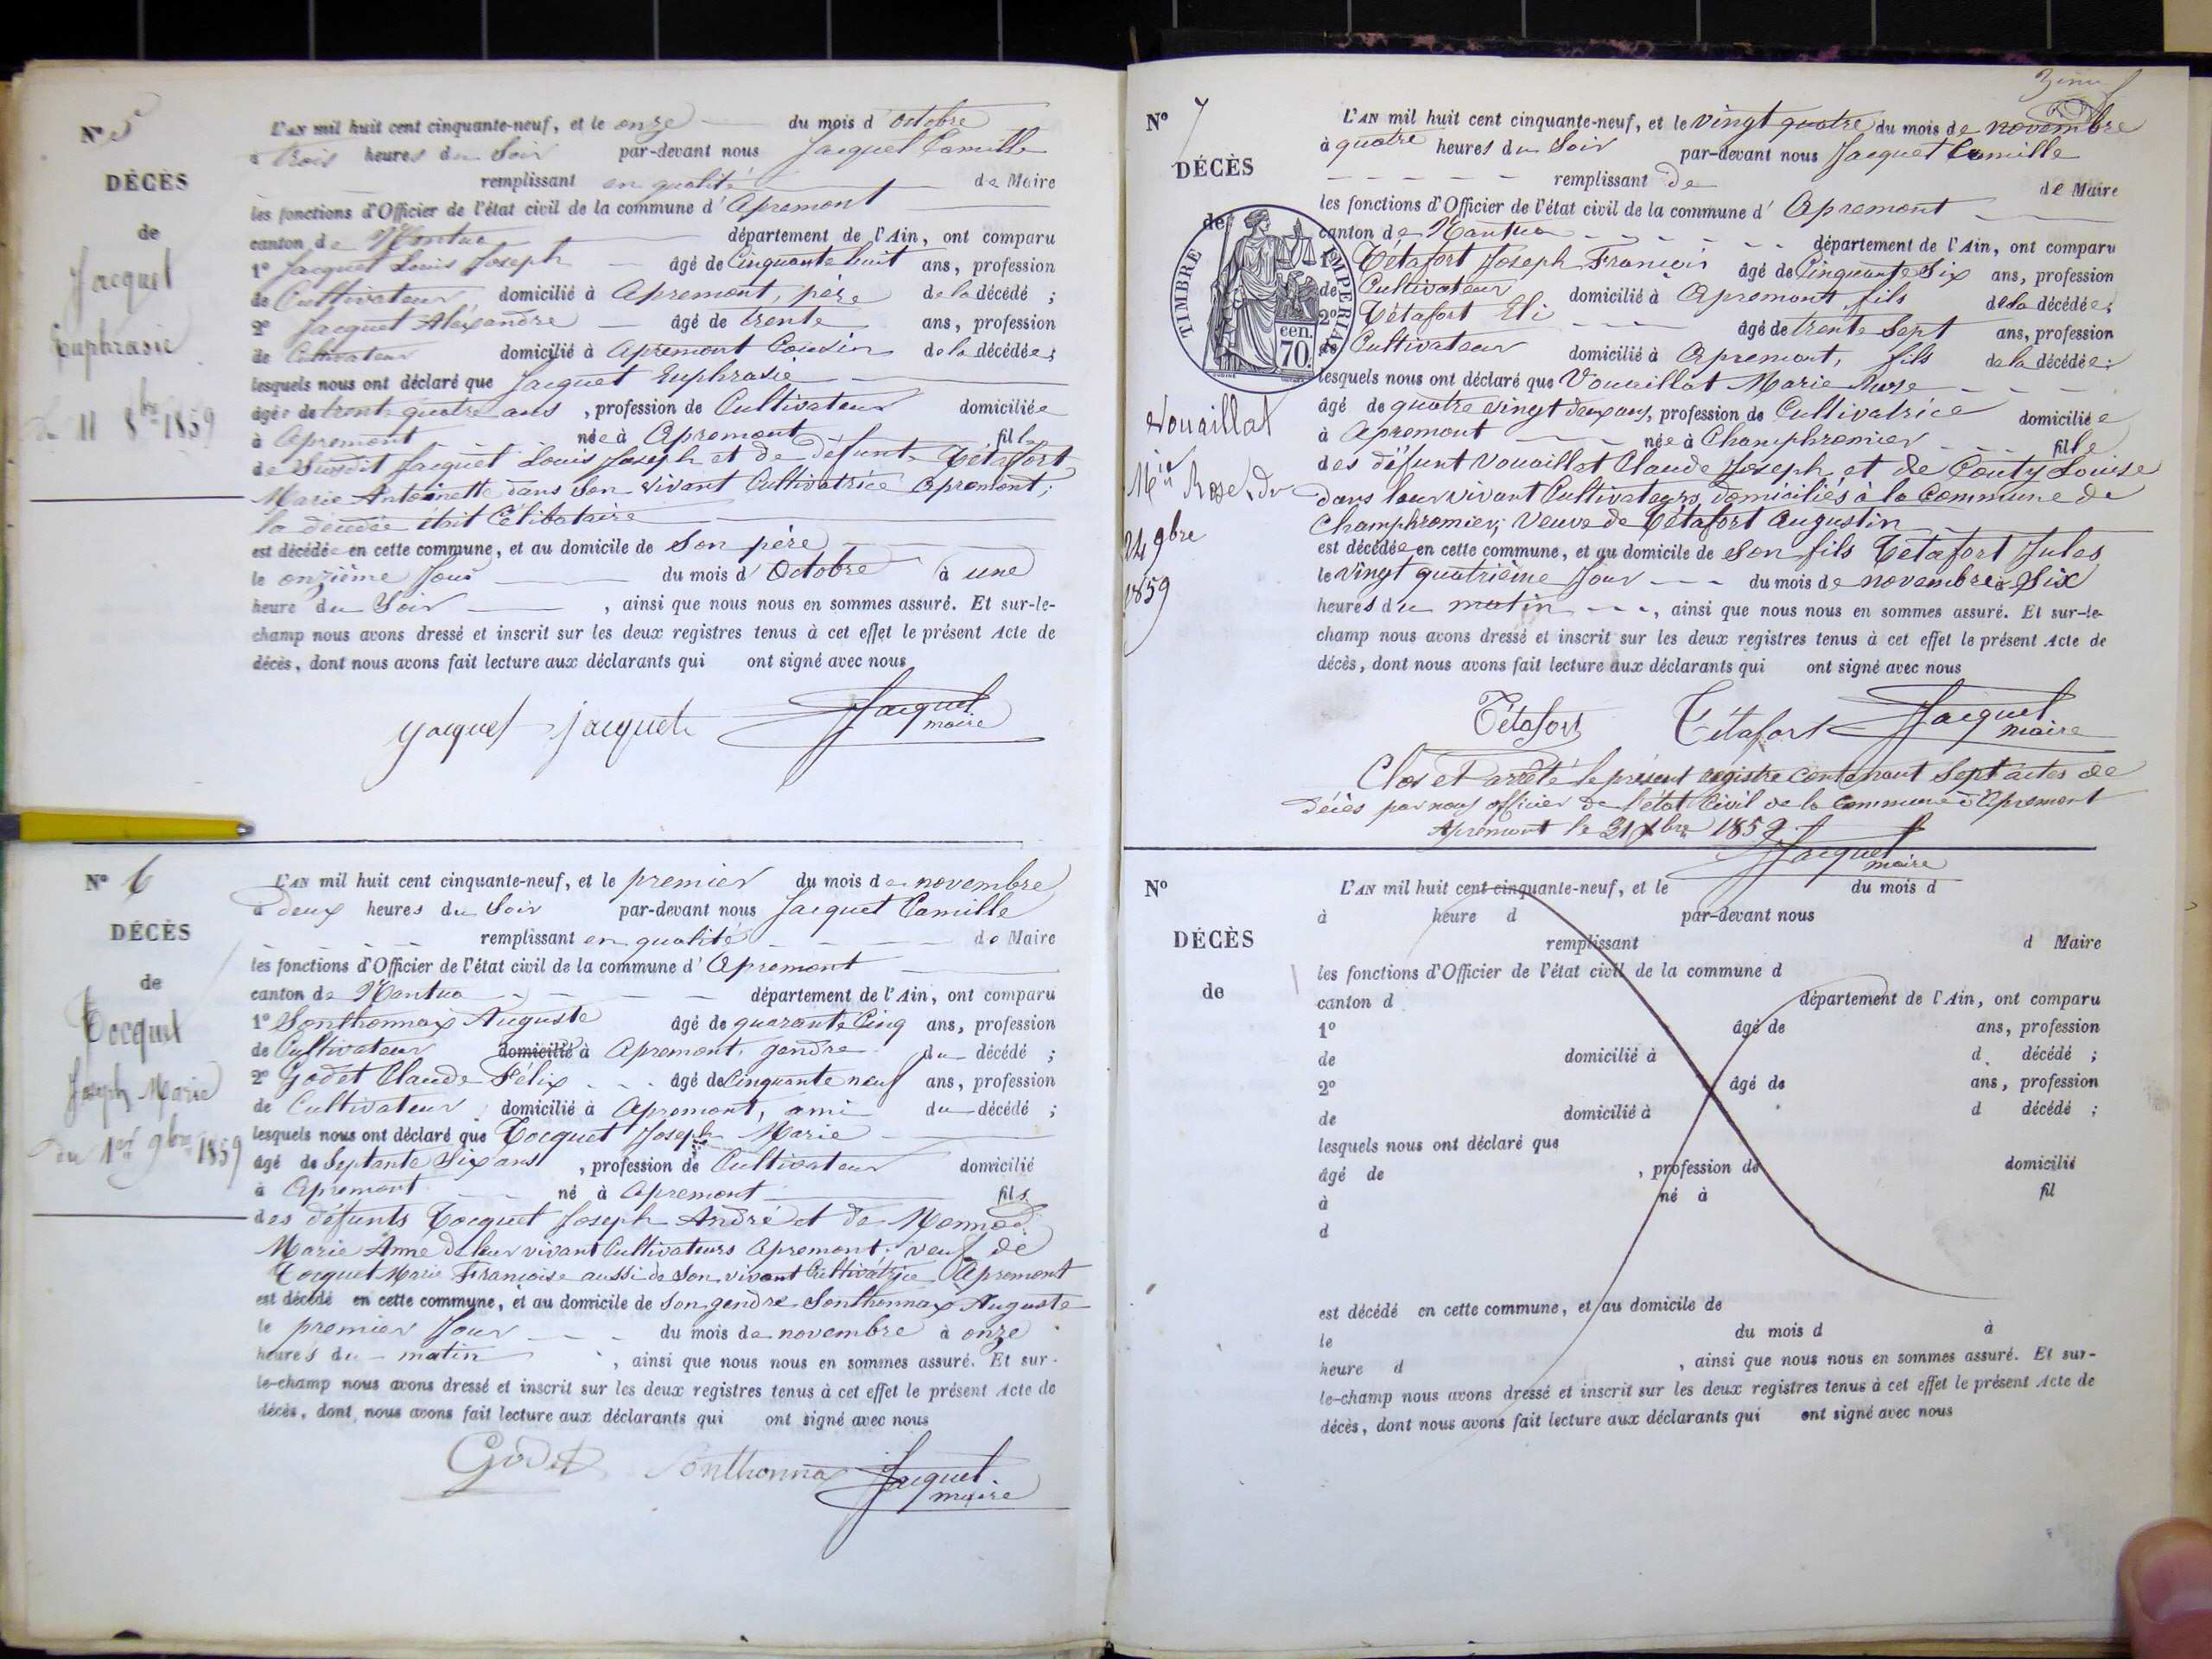 N° 5
DÉCÈS
de
Jacquet
Euphrasie
du 11 8bre 1859
L'AN mil huit cent cinquante-neuf, et le onze du mois d'Octobre
à trois heures du Soir par-devant nous Jacquet Camille
remplissant en qualité de Maire
les fonctions d'Officier de l'état civil de la commune d'Apremont
canton de Nantua département de l'Ain, ont comparu
1° Jacquet Louis Joseph âgé de Cinquante huit ans, profession
de Cultivateur domicilié à Apremont, père de la décédé ;
2° Jacquet Aléxandre âgé de trente ans, profession
de Cultivateur domicilié à Apremont Cousin de la décédée ;
lesquels nous ont déclaré que Jacquet Euphrasie
âgée de trent-quatre ans, profession de Cultivateur domiciliée
à Apremont née à Apremont fille
de Susdit Jacquet Louis Joseph et de défunte Tétafort
Marie Antoinette dans Son vivant Cultivatrice Apremont ;
la décédée était Célibataire
est décédée en cette commune, et au domicile de Son père
le onzième Jour du mois d'Octobre à une
heure du Soir, ainsi que nous nous en sommes assuré. Et sur-le-
champ nous avons dressé et inscrit sur les deux registres tenus à cet effet le présent Acte de
décès, dont nous avons fait lecture aux déclarants qui ont signé avec nous
Jacquet Jacquet Jacquet
maire
N° 6
DÉCÈS
de
Tocquet
Joseph Marie
du 1er 9bre 1859
L'AN mil huit cent cinquante-neuf, et le premier du mois de novembre
à deux heures du Soir par-devant nous Jacquet Camille
remplissant en qualité de Maire
les fonctions d'Officier de l'état civil de la commune d'Apremont
canton de Nantua département de l'Ain, ont comparu
1° Sonthonnax Auguste âgé de quarante Cinq ans, profession
de Cultivateur domicilié à Apremont, gendre du décédé ;
2° Godet Claude Félix âgé de Cinquante neuf ans, profession
de Cultivateur domicilié à Apremont, ami du décédé ;
lesquels nous ont déclaré que Tocquet Joseph Marie
âgé de Septante Six ans, profession de Cultivateur domicilié
à Apremont né à Apremont fils
des défunts Tocquet Joseph André et de Monnod
Marie Anne de leur vivant Cultivateurs Apremont ; veuf de
Tocquet Marie Françoise aussi de Son vivant Cultivatrice Apremont
est décédé en cette commune, et au domicile de Son gendre Sonthonnax Auguste
le premier Jour du mois de novembre à onze
heures du matin, ainsi que nous nous en sommes assuré. Et sur-
le-champ nous avons dressé et inscrit sur les deux registres tenus à cet effet le présent Acte de
décès, dont nous avons fait lecture aux déclarants qui ont signé avec nous
Godet Sonthonnax Jacquet
maire
N° 7
DÉCÈS
de
TIMBRE IMPERIAL
70 cen.
Vouaillat
Mie Rose, du
24 9bre
1859
L'AN mil huit cent cinquante-neuf, et le vingt quatre du mois de novembre
à quatre heures du Soir par-devant nous Jacquet Camille
remplissant de de Maire
les fonctions d'Officier de l'état civil de la commune d'Apremont
canton de Nantua département de l'Ain, ont comparu
1° Tétafort Joseph François âgé de Cinquante Six ans, profession
de Cultivateur domicilié à Apremont fils de la décédée ;
2° Tétafort Eli âgé de trente Sept ans, profession
de Cultivateur domicilié à Apremont, fils de la décédée ;
lesquels nous ont déclaré que Vouaillat Marie Rose
âgé de quatre vingt deux ans, profession de Cultivatrice domiciliée
à Apremont née à Champfromier fille
des défunt Vouaillat Claude Joseph et de Couty Louise
dans leur vivant Cultivateurs domiciliés à la Commune de
Champfromier ; Veuve de Tétafort Augustin
est décédée en cette commune, et au domicile de Son fils Tétafort Jules
le vingt quatrième Jour du mois de novembre à Six
heures du matin, ainsi que nous nous en sommes assuré. Et sur-le-
champ nous avons dressé et inscrit sur les deux registres tenus à cet effet le présent Acte de
décès, dont nous avons fait lecture aux déclarants qui ont signé avec nous
Tétafort Tétafort Jacquet
maire
Clos et arrêté le présent registre contenant Sept actes de
décès par nous officier de l'état Civil de la Commune d'Apremont
Apremont le 31 Xbre 1859
Jacquet
maire
N°
DÉCÈS
de
L'AN mil huit cent cinquante-neuf, et le du mois d
à heure d par-devant nous
remplissant d Maire
les fonctions d'Officier de l'état civil de la commune d
canton d département de l'Ain, ont comparu
1° âgé de ans, profession
de domicilié à d décédé ;
2° âgé de ans, profession
de domicilié à d décédé ;
lesquels nous ont déclaré que
âgé de , profession de domicilié
à né à fil
d
est décédé en cette commune, et au domicile de
le du mois d à
heure d , ainsi que nous nous en sommes assuré. Et sur-
le-champ nous avons dressé et inscrit sur les deux registres tenus à cet effet le présent Acte de
décès, dont nous avons fait lecture aux déclarants qui ont signé avec nous